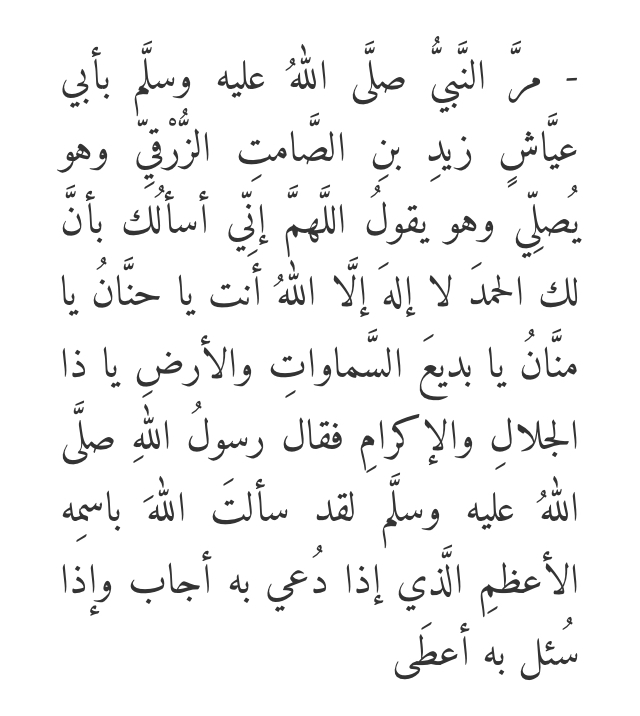 - مرَّ النَّبيُّ صلَّى اللهُ عليه وسلَّم بأبي
عيَّاشٍ زيدِ بنِ الصَّامتِ الزُّرْقيِّ وهو
يُصلِّي وهو يقولُ اللَّهمَّ إنِّي أسألُك بأنَّ
لك الحمدَ لا إلهَ إلَّا اللهُ أنت يا حنَّانُ يا
منَّانُ يا بديعَ السَّماواتِ والأرضِ يا ذا
الجلالِ والإكرامِ فقال رسولُ اللهِ صلَّى
اللهُ عليه وسلَّم لقد سألتَ اللهَ باسمِه
الأعظمِ الَّذي إذا دُعي به أجاب وإذا
سُئل به أعطَى